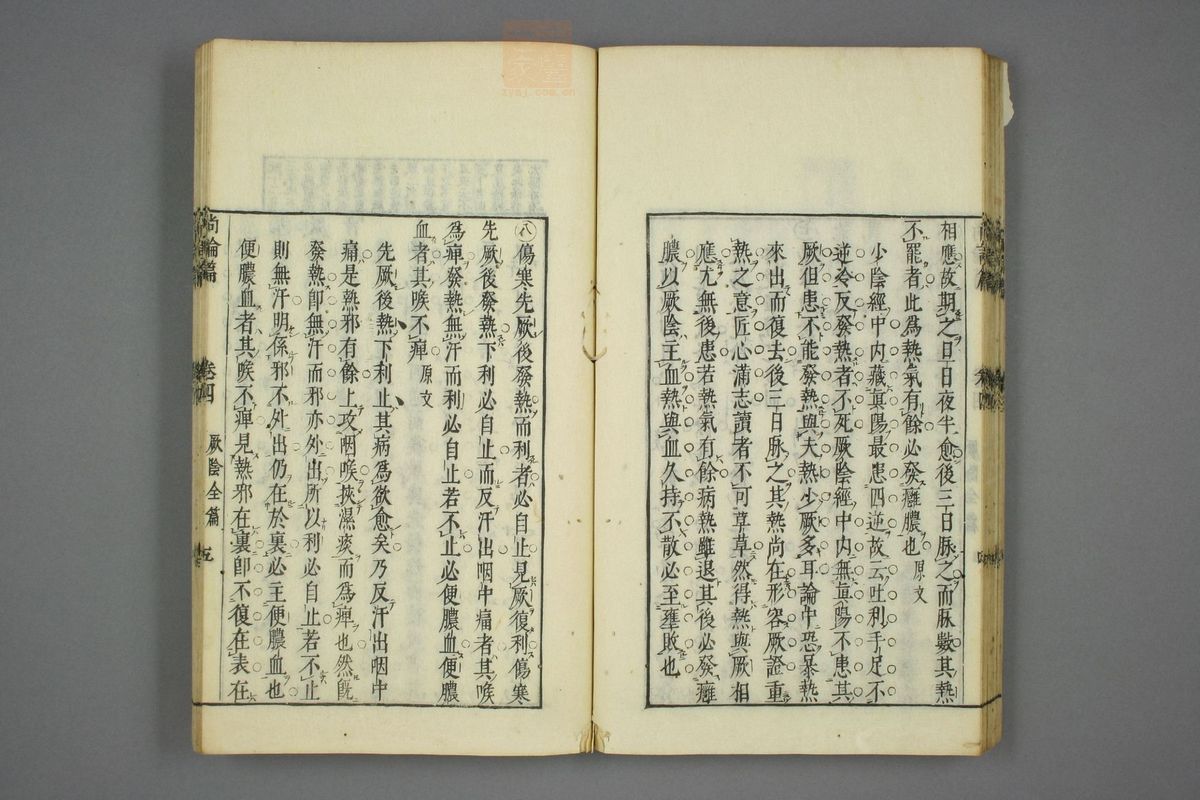 相應故期之旦日夜半愈後三日脉之而脉數其熱
不罷者此爲熱氣有餘必發癰膿也原文
少陰經中内藏眞陽最患四逆故云吐利手足不
逆冷反發熱者不死厥陰經中内無眞陽不患其
厥但患不能發熱與夫熱少厥多耳論中恐暴熱
來出而復去後三日脉之其熱尚在形容厥證重
熱之意匠心滿志讀者不可草草然得熱與厥相
應尤無後患若熱氣有餘病熱雖退其後必發癰
膿以厥陰主血熱與血久持不散必至壅敗也
㊇傷寒先厥後發熱而利者必自止見厥復利傷寒
先厥後發熱下利必自止而反汗出咽中痛者其喉
爲痺發熱無汗而利必自止若不止必便膿血便膿
血者其喉不痺原文
先厥後熱下利止其病爲欲愈矣乃反汗出咽中
痛是熱邪有餘上攻咽喉挾濕痰而爲痺也然既
發熱卽無汗而邪亦外出所以利必自止若不止
則無汗明係邪不外出仍在於裏必主便膿血也
便膿血者其喉不痺見熱邪在裏卽不復在表在
尚論篇
卷四
厥陰全篇
五